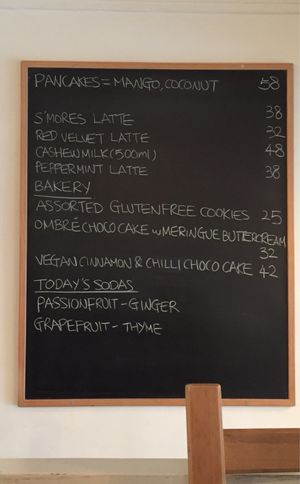 PANCAKES = MANGO, COCONUT 58
S'MORES LATTE 38
RED VELVET LATTE 32
CASHEW MILK (500ml) 48
PEPPERMINT LATTE 38
BAKERY
ASSORTED GLUTENFREE COOKIES 25
OMBRÉ CHOCO CAKE w MERINGUE BUTTERCREAM
32
VEGAN CINNAMON & CHILLI CHOCO CAKE 42
TODAY'S SODAS
PASSIONFRUIT - GINGER
GRAPEFRUIT - THYME